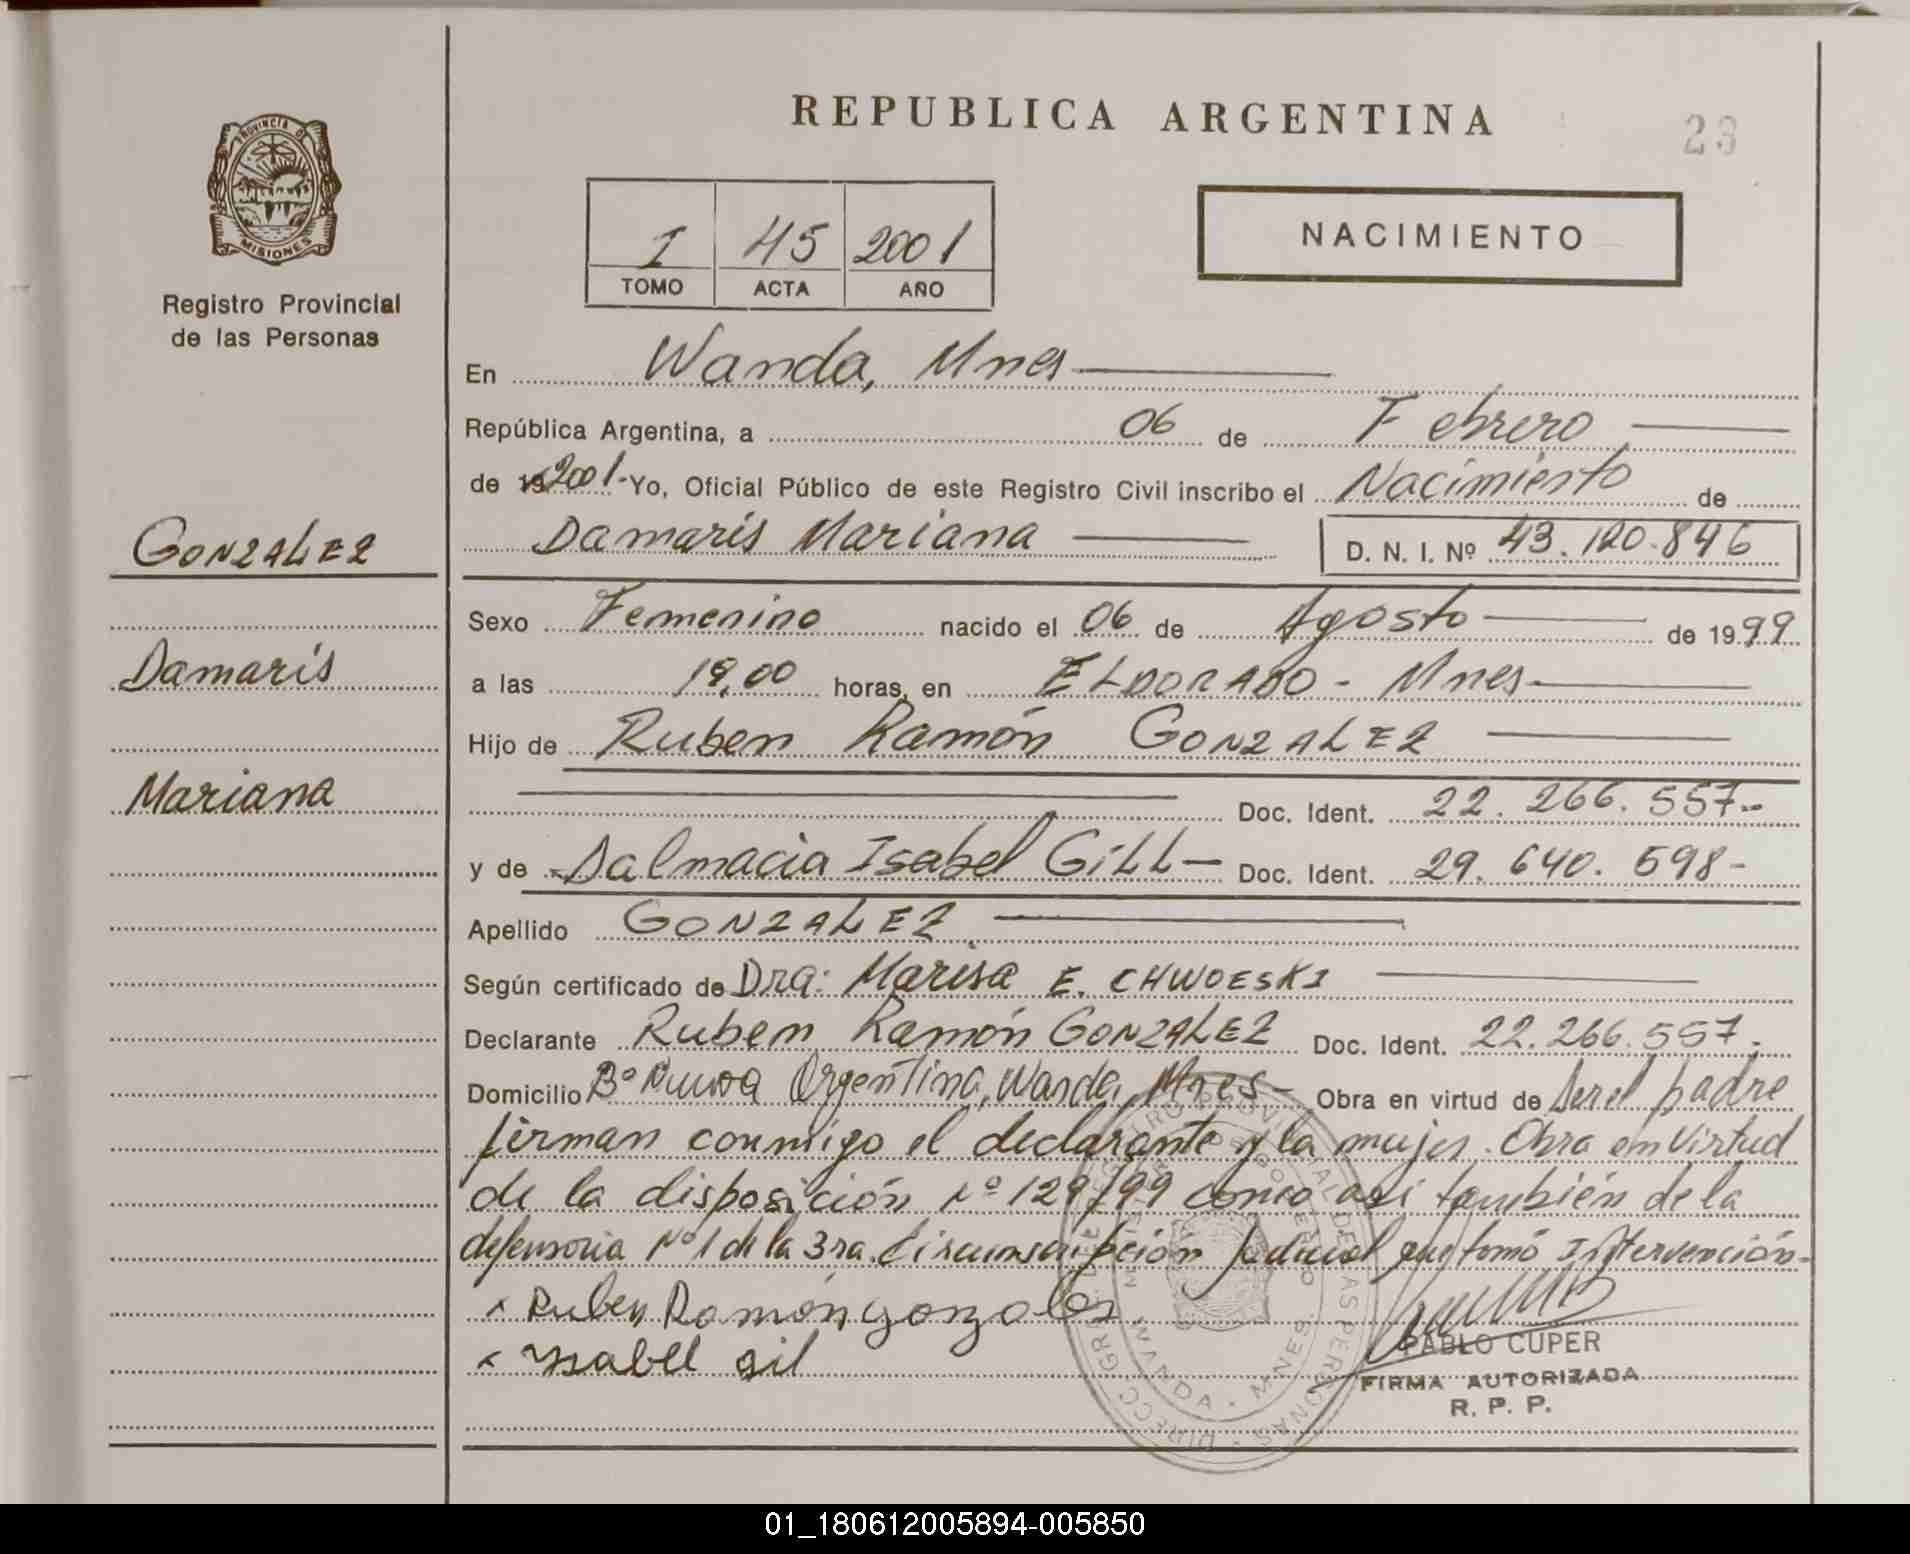 REPUBLICA ARGENTINA
23
PROVINCIA D
MISIONES
Registro Provincial
de las Personas
I 45 2001
TOMO ACTA AÑO
NACIMIENTO
En Wanda, Mnes
República Argentina, a 06 de Febrero
de 19 2001- Yo, Oficial Público de este Registro Civil inscribo el Nacimiento de
Damaris Mariana D. N. I. Nº 43.120.846
GONZALEZ
Damaris
Mariana
Sexo Femenino nacido el 06 de Agosto de 1999
a las 19,00 horas, en ELDORADO - Mnes-
Hijo de Ruben Ramón GONZALEZ
Doc. Ident. 22.266.557--
y de Dalmacia Isabel GiLL- Doc. Ident. 29.640.598-
Apellido GONZALEZ
Según certificado de Dra: Marisa E. CHWOESKI
Declarante Ruben Ramón GONZALEZ Doc. Ident. 22.266.557.
Domicilio Bº Nueva Argentina, Wanda, Mnes- Obra en virtud de ser el padre
firman conmigo el declarante y la mujer. Obra en virtud
de la disposición Nº 129/99 como así también de la
defensoria Nº 1 de la 3ra. Circunscripción judicial que tomó Intervención-
x Ruben Ramón gonzales
x Ysabel gil
PABLO CUPER
FIRMA AUTORIZADA
R. P. P.
WANDA - MNES
01_180612005894-005850